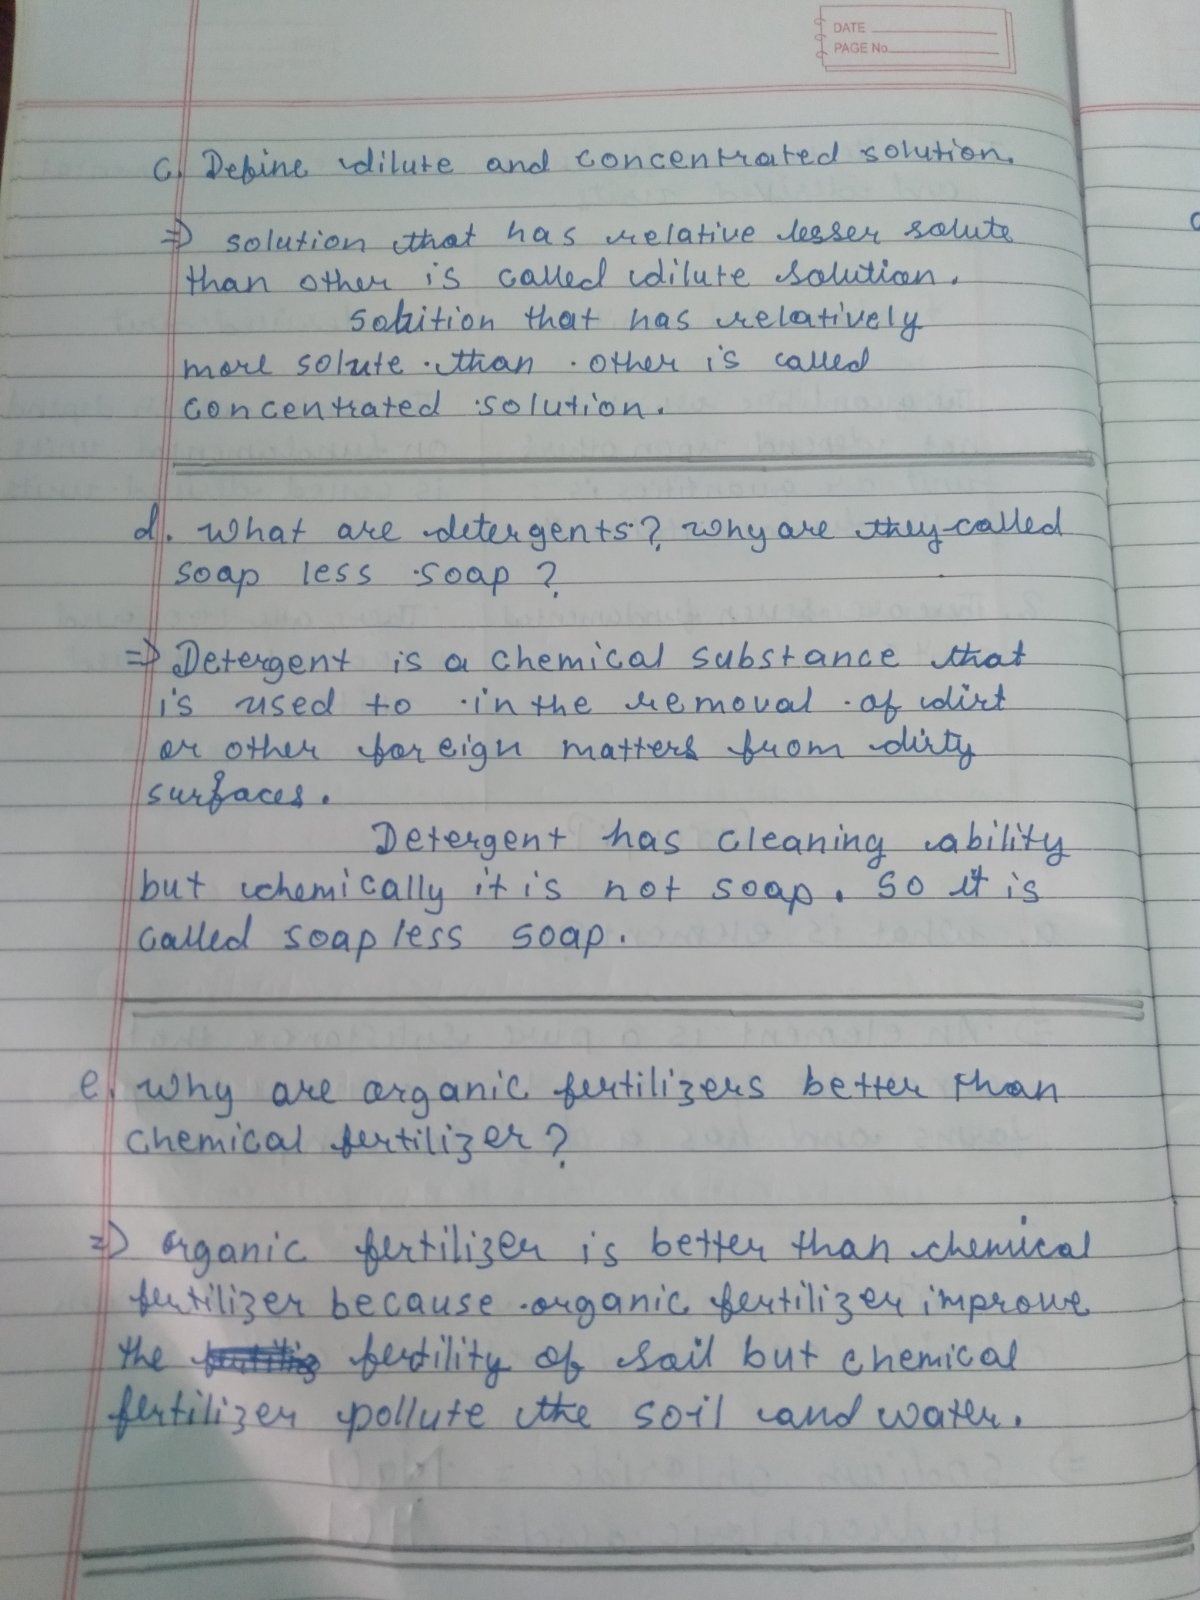 DATE
PAGE No.
c. Define dilute and concentrated solution.
⇒ solution that has relative lesser solute
than other is called dilute solution.
Solution that has relatively
more solute than other is called
concentrated solution.
d. What are detergents? Why are they called
soap less soap?
⇒ Detergent is a chemical substance that
is used to in the removal of dirt
or other foreign matters from dirty
surfaces.
Detergent has cleaning ability
but chemically it is not soap. So it is
called soap less soap.
e. Why are organic fertilizers better than
chemical fertilizer?
⇒ organic fertilizer is better than chemical
fertilizer because organic fertilizer improve
the fertility of soil but chemical
fertilizer pollute the soil and water.